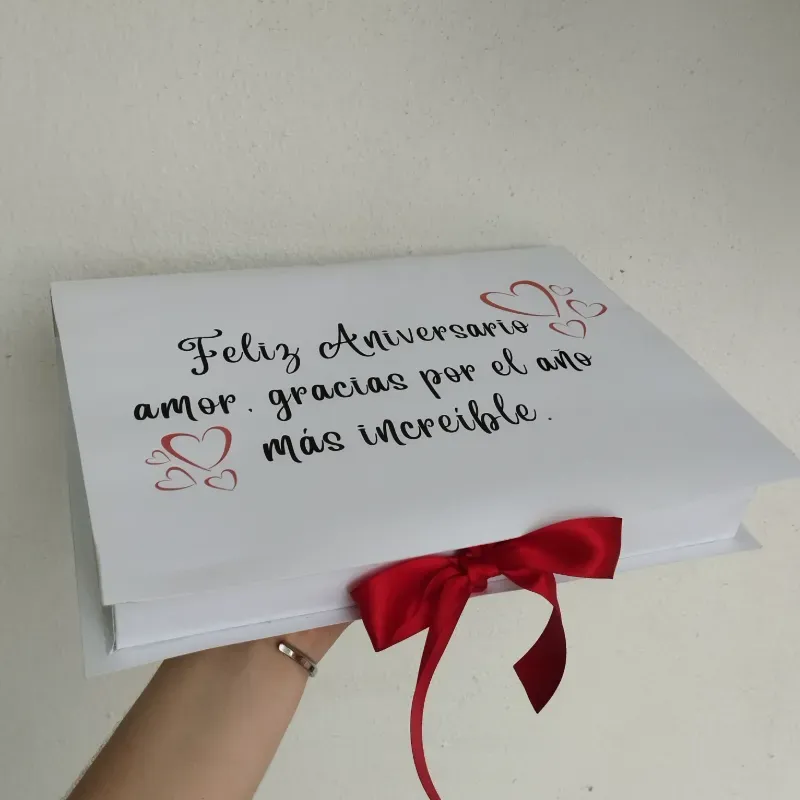 Feliz Aniversario
amor. gracias por el año
más increíble.